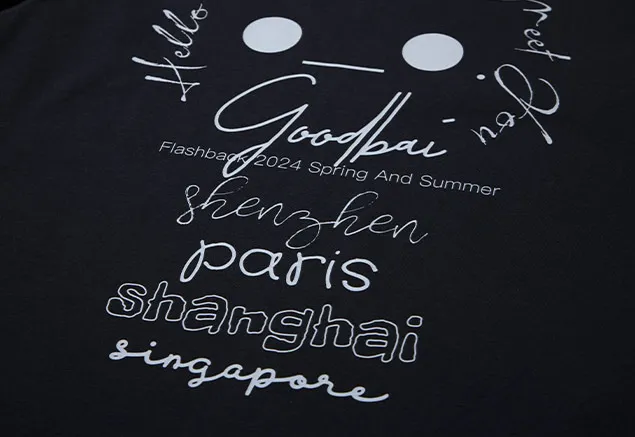 Hello
meet You
Goodbai
Flashback 2024 Spring And Summer
shenzhen
paris
shanghai
singapore